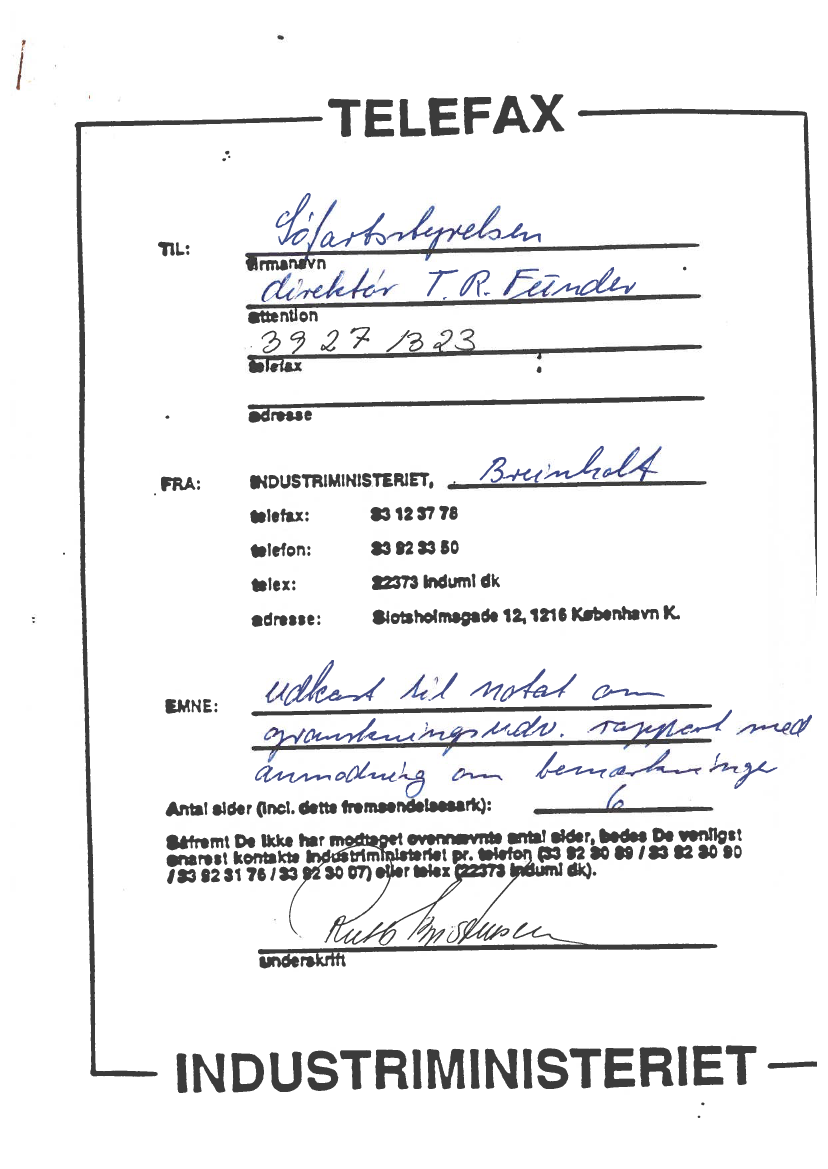 TELEFAX
TIL: Söfartsstyrelsen
firmanavn
direktör T. R. Funder
attention
39 27 1323
telefax
adresse
FRA: INDUSTRIMINISTERIET, Breinholt
telefax: 33 12 37 78
telefon: 33 92 33 50
telex: 22373 indumi dk
adresse: Slotsholmsgade 12, 1216 København K.
EMNE: udkast til notat om
granskningsudv. rapport med
anmodning om bemærkninger
Antal sider (incl. dette fremsendelsesark): 6
Såfremt De ikke har modtaget ovennævnte antal sider, bedes De venligst
snarest kontakte Industriministeriet pr. telefon (33 92 30 89 / 33 92 30 90
/ 33 92 31 76 / 33 92 30 07) eller telex (22373 indumi dk).
Ruth
underskrift
INDUSTRIMINISTERIET